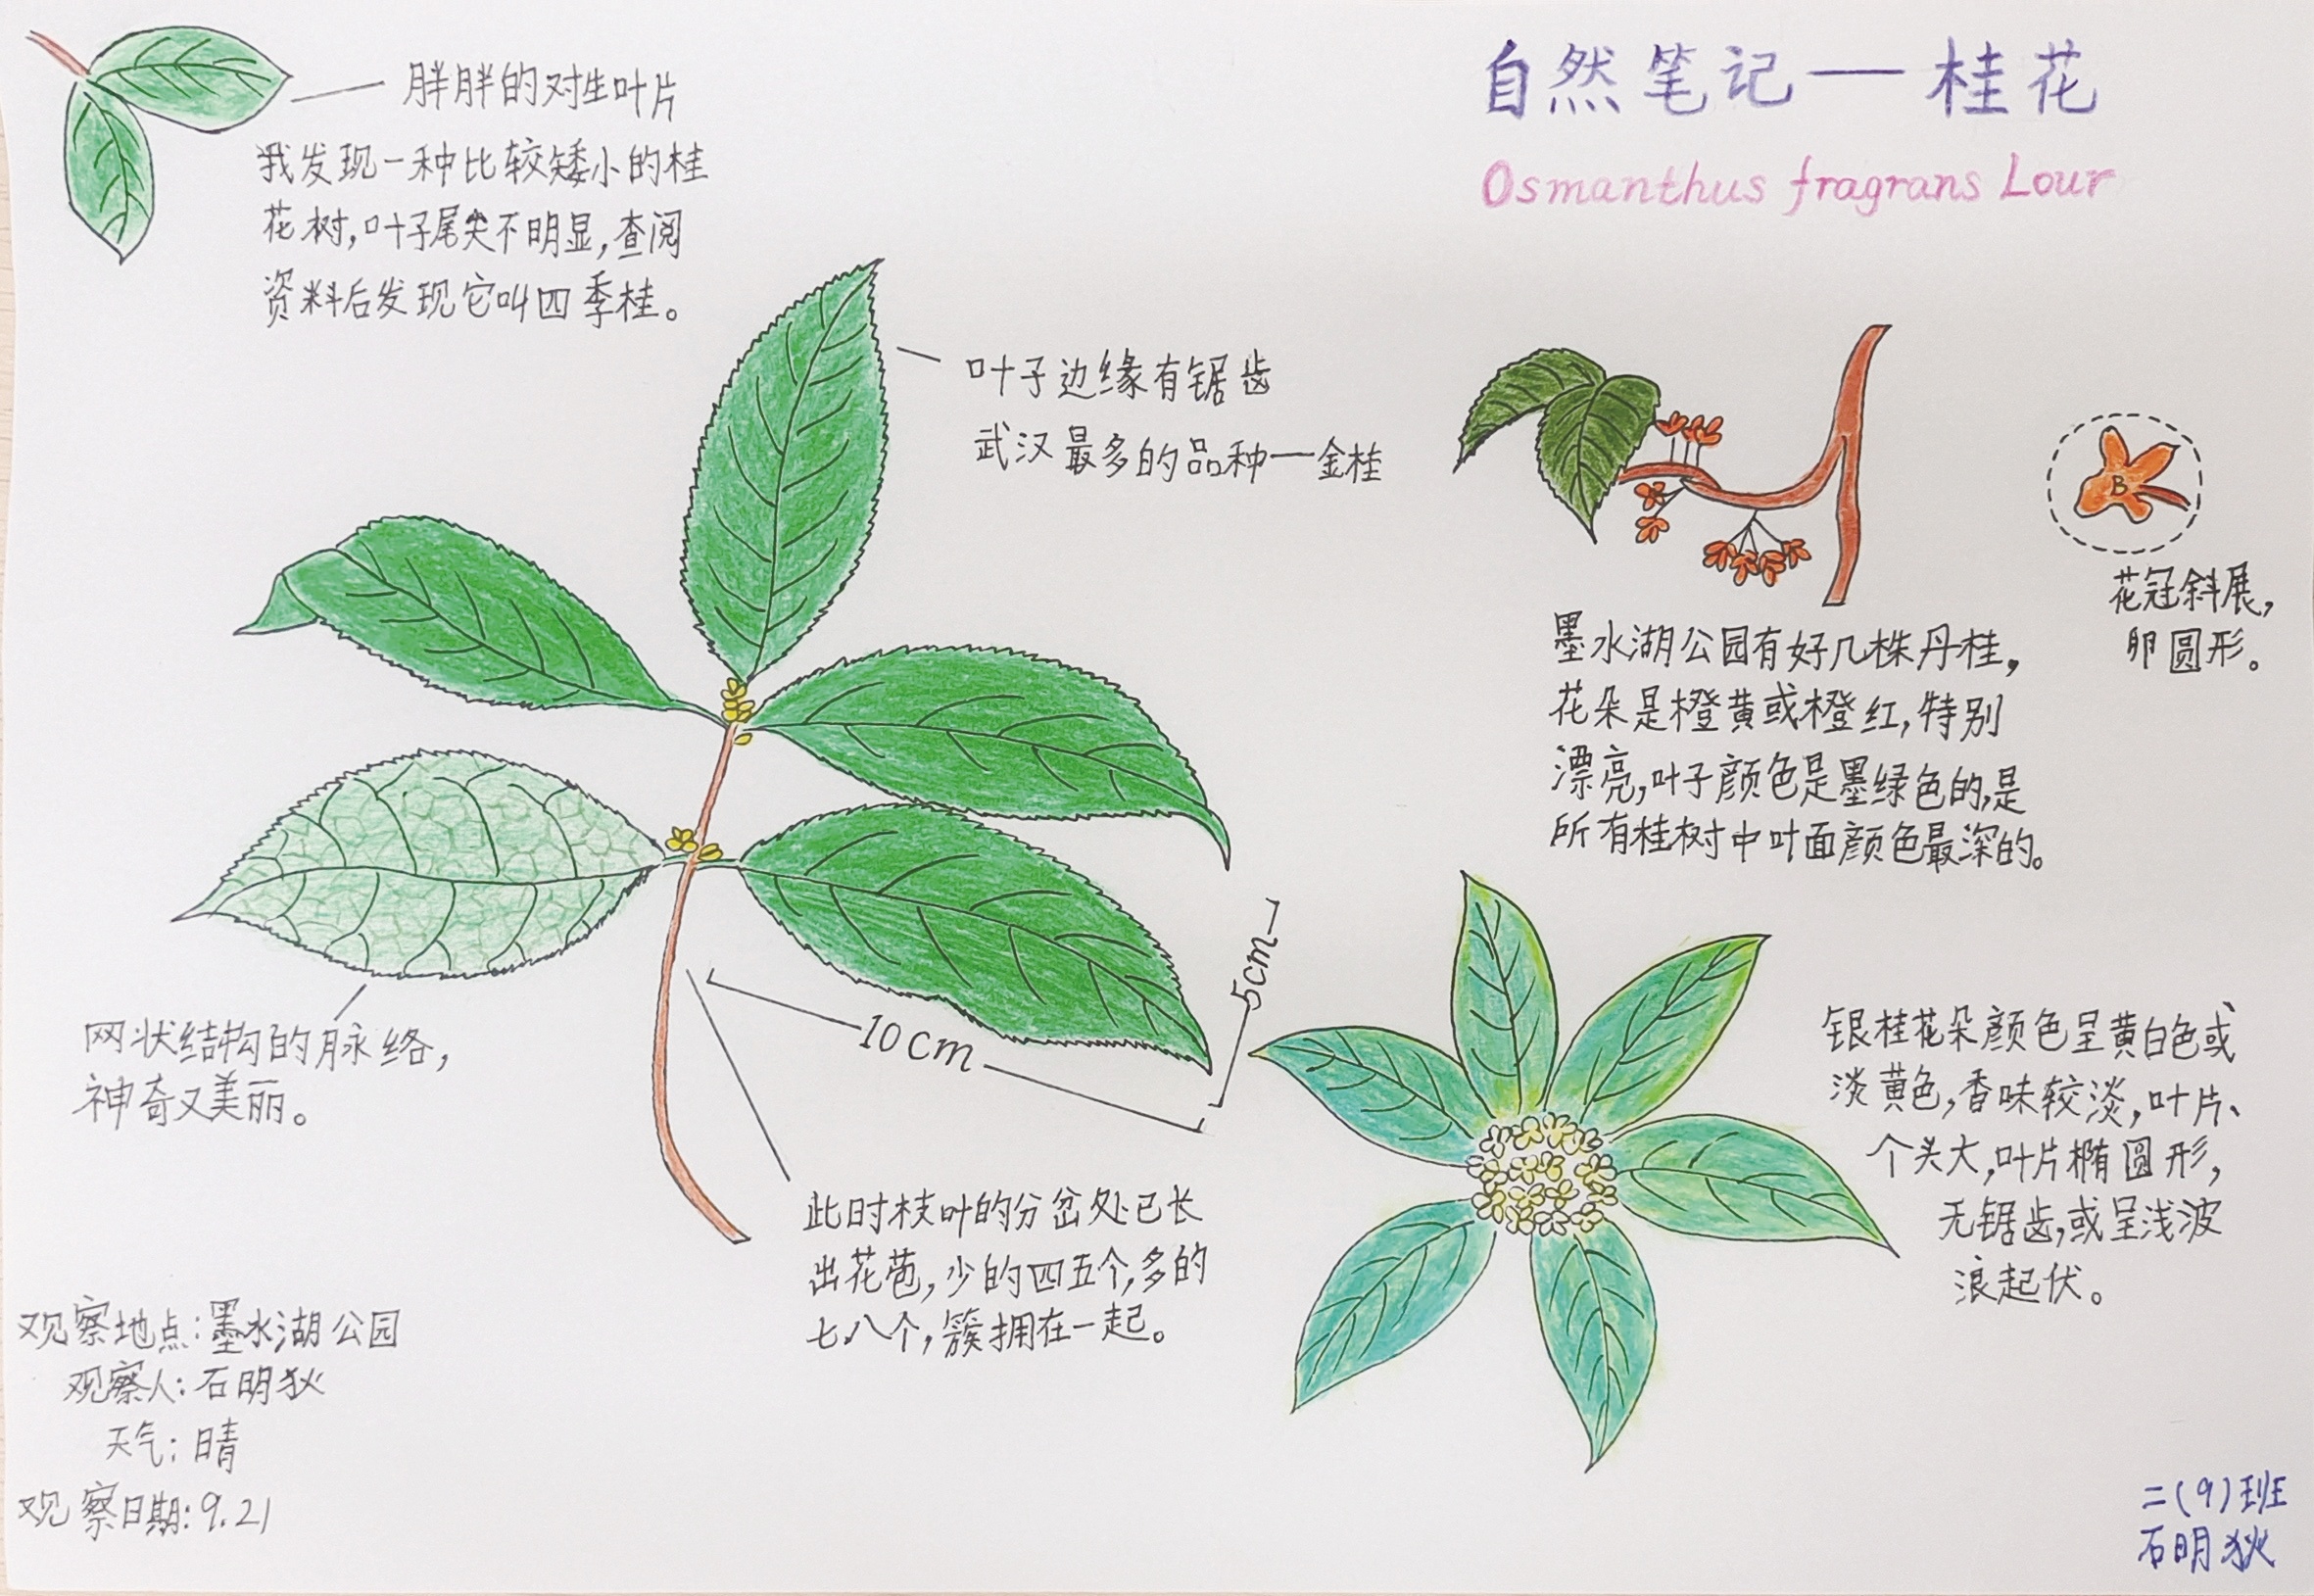 自然笔记——桂花
Osmanthus fragrans Lour
胖胖的对生叶片
我发现一种比较矮小的桂
花树,叶子尾尖不明显,查阅
资料后发现它叫四季桂。
叶子边缘有锯齿
武汉最多的品种—金桂
B
花冠斜展,
卵圆形。
墨水湖公园有好几株丹桂,
花朵是橙黄或橙红,特别
漂亮,叶子颜色是墨绿色的,是
所有桂树中叶面颜色最深的。
网状结构的脉络,
神奇又美丽。
10cm
5cm
此时枝叶的分岔处已长
出花苞,少的四五个,多的
七八个,簇拥在一起。
银桂花朵颜色呈黄白色或
淡黄色,香味较淡,叶片、
个头大,叶片椭圆形,
无锯齿,或呈浅波
浪起伏。
观察地点:墨水湖公园
观察人:石明狄
天气:晴
观察日期:9.21
二(9)班
石明狄